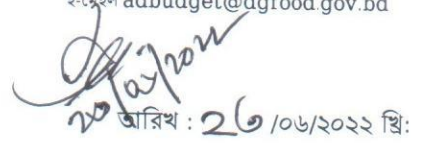 ই-মেইল adbudget@dgfood.gov.bd
তারিখ : ২৬/০৬/২০২২ খ্রি: